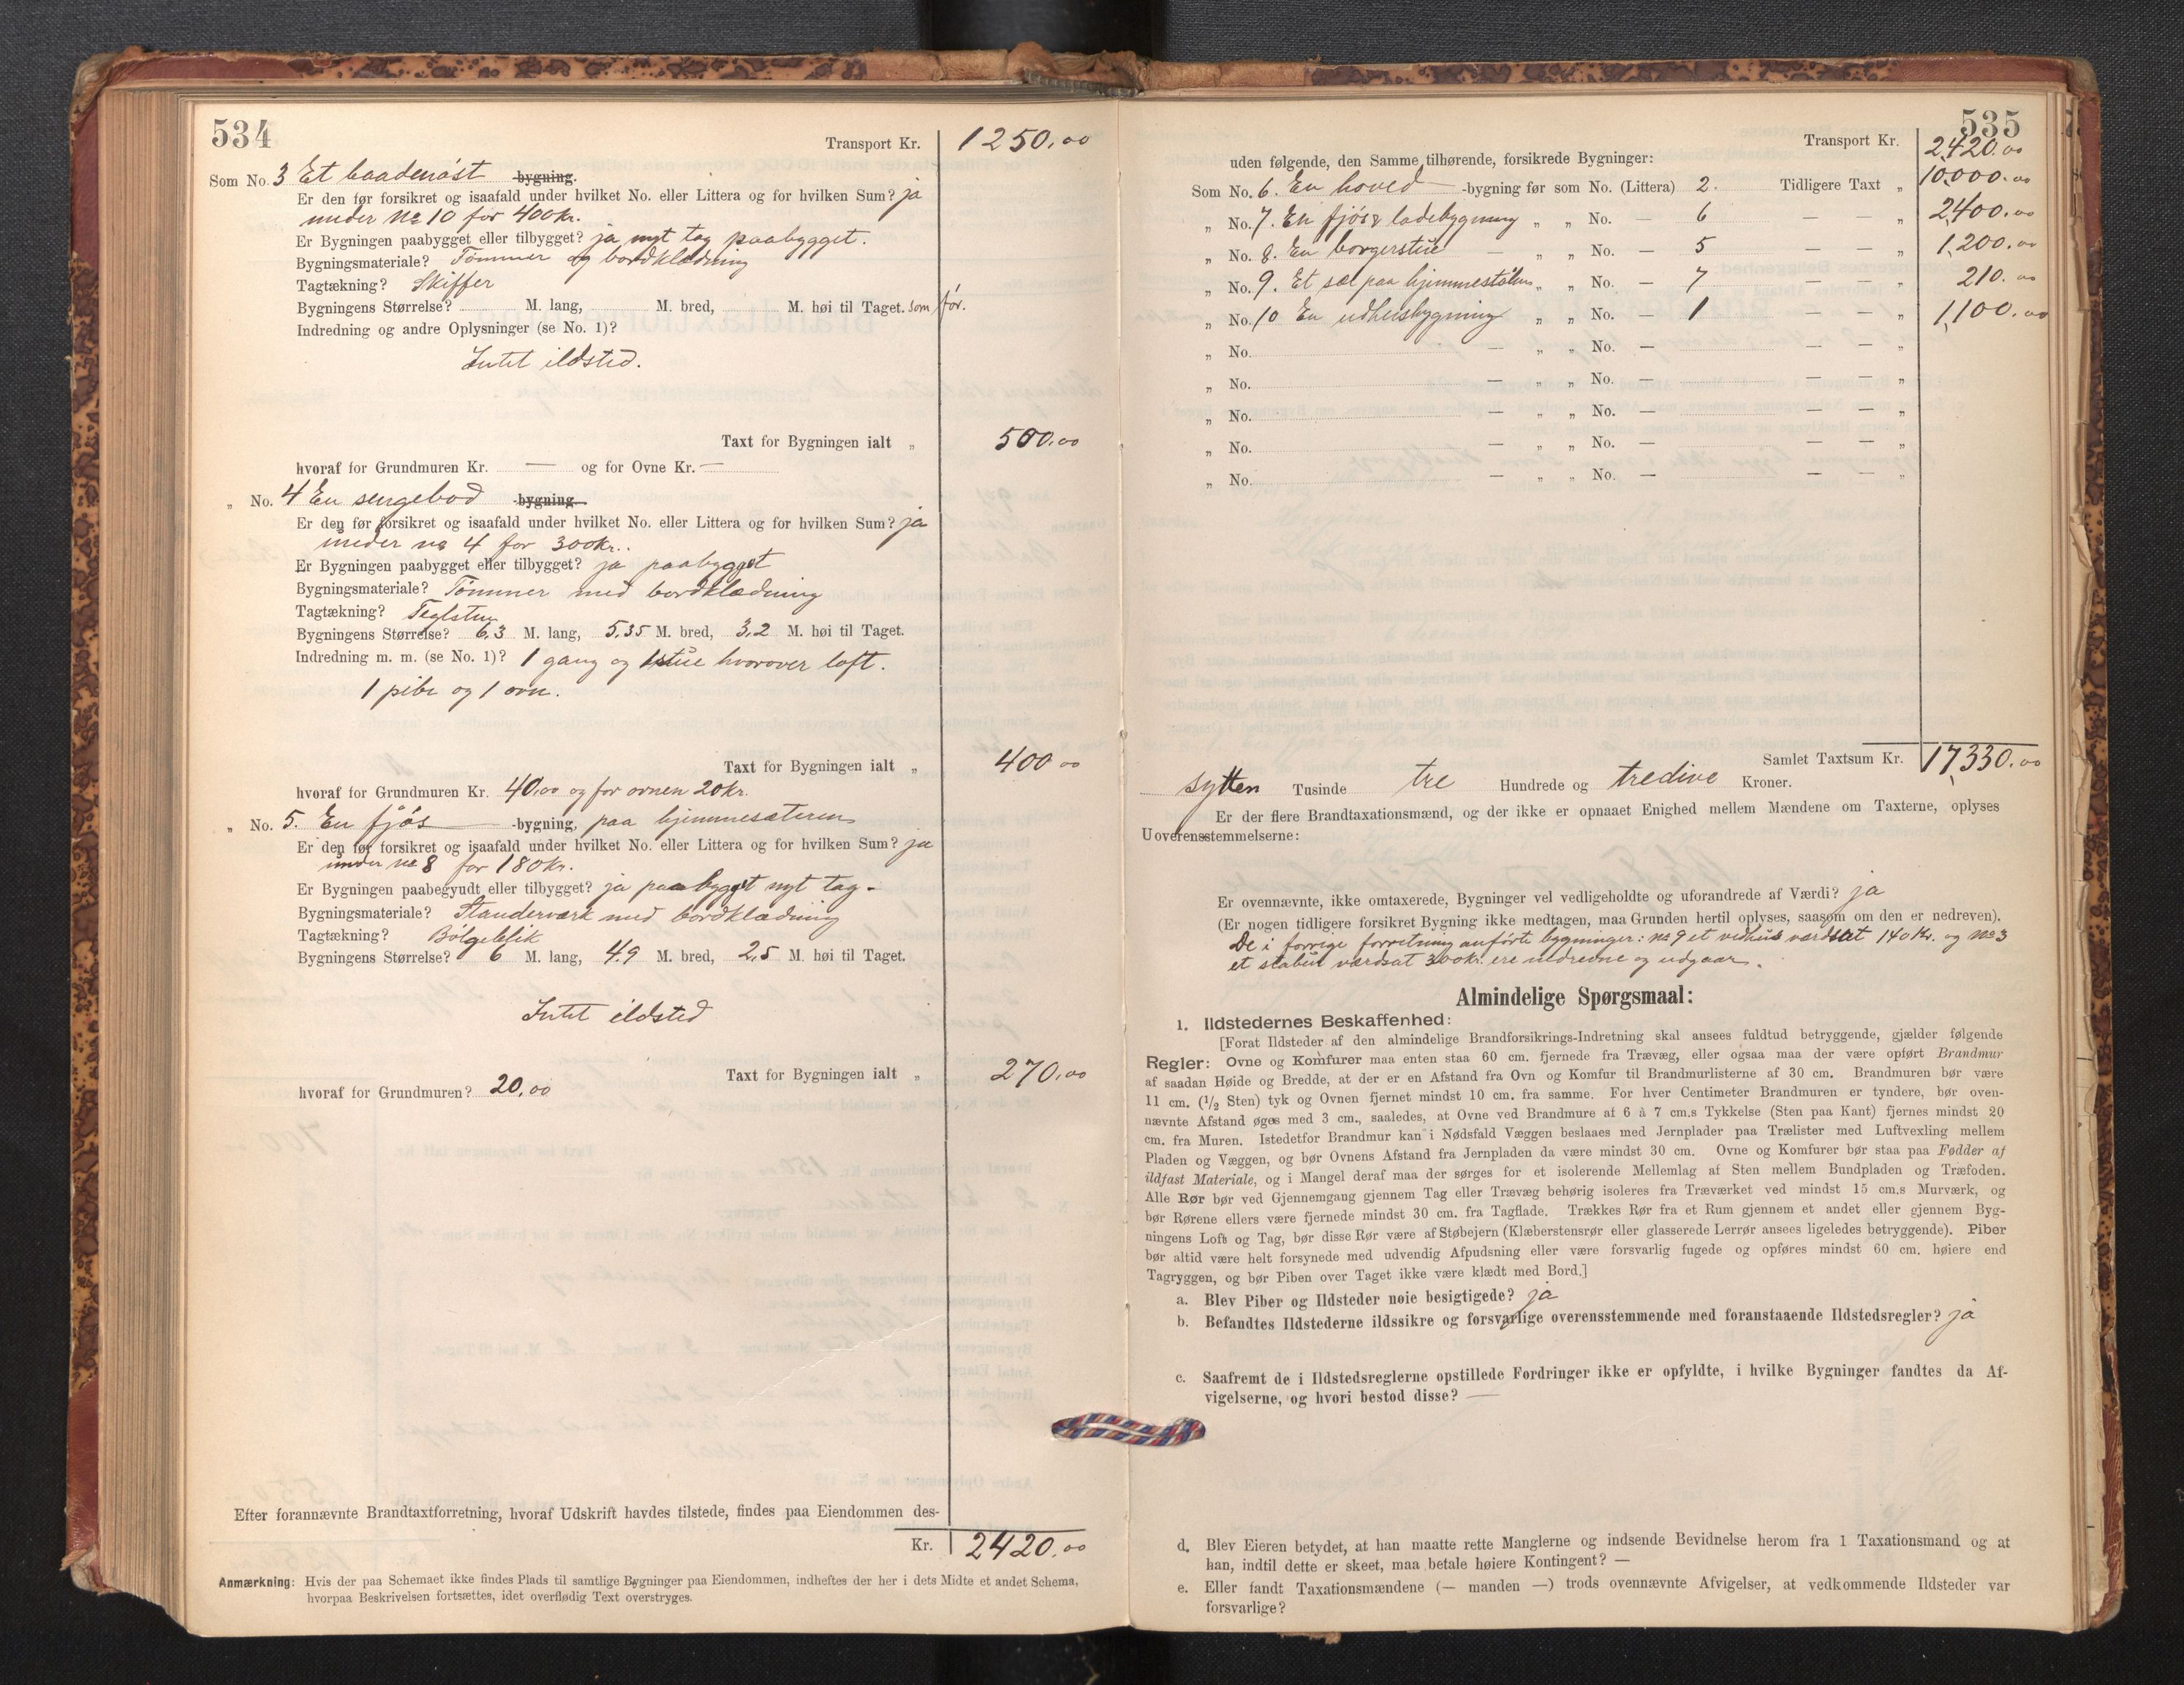 534
Transport Kr. 1250.00
Som No. 3 Et baadenöst -bygning.
Er den før forsikret og isaafald under hvilket No. eller Littera og for hvilken Sum? ja
under No 10 for 400kr.
Er Bygningen paabygget eller tilbygget? ja nyt tag paabygget.
Bygningsmateriale? Tömmer og bordklædning
Tagtækning? Skiffer
Bygningens Størrelse? M. lang, M. bred, M. høi til Taget. som för.
Indredning og andre Oplysninger (se No. 1)?
Intet ildsted.
Taxt for Bygningen ialt „ 500.00
hvoraf for Grundmuren Kr. — og for Ovne Kr. —
„ No. 4 En sengebod -bygning
Er den før forsikret og isaafald under hvilket No. eller Littera og for hvilken Sum? ja
under no 4 for 300kr..
Er Bygningen paabygget eller tilbygget? ja paabygget
Bygningsmateriale? Tömmer med bordklædning
Tagtækning? Teglsten
Bygningens Størrelse? 6,3 M. lang, 5,35 M. bred, 3,2 M. høi til Taget.
Indredning m. m. (se No. 1)? 1 gang og 1 stue hvorover loft.
1 pibe og 1 ovn.
Taxt for Bygningen ialt „ 400 00
hvoraf for Grundmuren Kr. 40,00 og for ovnen 20kr.
„ No. 5. En fjös -bygning, paa hjemmesæteren
Er den før forsikret og isaafald under hvilket No. eller Littera og for hvilken Sum? ja
under no 8 for 180kr.
Er Bygningen paabegyndt eller tilbygget? ja paabygget nyt tag -
Bygningsmateriale? Standerværk med bordklædning
Tagtækning? Bölgeblik
Bygningens Størrelse? 6 M. lang, 4,9 M. bred, 2,5 M. høi til Taget.
Intet ildsted
Taxt for Bygningen ialt „ 270,00
hvoraf for Grundmuren? 20,00
Efter forannævnte Brandtaxtforretning, hvoraf Udskrift havdes tilstede, findes paa Eiendommen des-
Kr. 2420.00
Anmærkning: Hvis der paa Schemaet ikke findes Plads til samtlige Bygninger paa Eiendommen, indheftes der her i dets Midte et andet Schema,
hvorpaa Beskrivelsen fortsættes, idet overflødig Text overstryges.
535
Transport Kr. 2420.00
uden følgende, den Samme tilhørende, forsikrede Bygninger:
Som No. 6. En hoved -bygning før som No. (Littera) 2. Tidligere Taxt „ 10,000.00
„ No. 7. En fjös & ladebygning „ „ No. — 6 — — „ 2400.00
„ No. 8. En borgerstue — „ „ No. — 5 — — „ 1,200.00
„ No. 9. Et sel paa hjemmestölen „ „ No. — 7 — — „ 210.00
„ No. 10 En udhusbygning „ „ No. — 1 — — „ 1,100.00
„ No. — „ „ No. — — — „
„ No. — „ „ No. — — — „
„ No. — „ „ No. — — — „
„ No. — „ „ No. — — — „
„ No. — „ „ No. — — — „
Samlet Taxtsum Kr. 17,330.00
sytten Tusinde tre Hundrede og tredive Kroner.
Er der flere Brandtaxationsmænd, og der ikke er opnaaet Enighed mellem Mændene om Taxterne, oplyses
Uoverensstemmelserne:
Er ovennævnte, ikke omtaxerede, Bygninger vel vedligeholdte og uforandrede af Værdi? ja
(Er nogen tidligere forsikret Bygning ikke medtagen, maa Grunden hertil oplyses, saasom om den er nedreven).
De i forrige forretning anförte bygninger: no 9 et vedhus værdsat 140kr. og No 3
et stabur værdsat 300kr. ere nedrevne og udgaar.
Almindelige Spørgsmaal:
1. Ildstedernes Beskaffenhed:
[Forat Ildsteder af den almindelige Brandforsikrings-Indretning skal ansees fuldtud betryggende, gjælder følgende
Regler: Ovne og Komfurer maa enten staa 60 cm. fjernede fra Trævæg, eller ogsaa maa der være opført Brandmur
af saadan Høide og Bredde, at der er en Afstand fra Ovn og Komfur til Brandmurlisterne af 30 cm. Brandmuren bør være
11 cm. (1/2 Sten) tyk og Ovnen fjernet mindst 10 cm. fra samme. For hver Centimeter Brandmuren er tyndere, bør oven-
nævnte Afstand øges med 3 cm., saaledes, at Ovne ved Brandmure af 6 à 7 cm.s Tykkelse (Sten paa Kant) fjernes mindst 20
cm. fra Muren. Istedetfor Brandmur kan i Nødsfald Væggen beslaaes med Jernplader paa Trælister med Luftvexling mellem
Pladen og Væggen, og bør Ovnens Afstand fra Jernpladen da være mindst 30 cm. Ovne og Komfurer bør staa paa Fødder af
ildfast Materiale, og i Mangel deraf maa der sørges for et isolerende Mellemlag af Sten mellem Bundpladen og Træfoden.
Alle Rør bør ved Gjennemgang gjennem Tag eller Trævæg behørig isoleres fra Træværket ved mindst 15 cm.s Murværk, og
bør Rørene ellers være fjernede mindst 30 cm. fra Tagflade. Trækkes Rør fra et Rum gjennem et andet eller gjennem Byg-
ningens Loft og Tag, bør disse Rør være af Støbejern (Klæberstensrør eller glasserede Lerrør ansees ligeledes betryggende). Piber
bør altid være helt forsynede med udvendig Afpudsning eller være forsvarlig fugede og opføres mindst 60 cm. høiere end
Tagryggen, og bør Piben over Taget ikke være klædt med Bord.]
a. Blev Piber og Ildsteder nøie besigtigede? ja
b. Befandtes Ildstederne ildssikre og forsvarlige overensstemmende med foranstaaende Ildstedsregler? ja
c. Saafremt de i Ildstedsreglerne opstillede Fordringer ikke er opfyldte, i hvilke Bygninger fandtes da Af-
vigelserne, og hvori bestod disse? —
d. Blev Eieren betydet, at han maatte rette Manglerne og indsende Bevidnelse herom fra 1 Taxationsmand og at
han, indtil dette er skeet, maa betale høiere Kontingent? —
e. Eller fandt Taxationsmændene (— manden —) trods ovennævnte Afvigelser, at vedkommende Ildsteder var
forsvarlige?